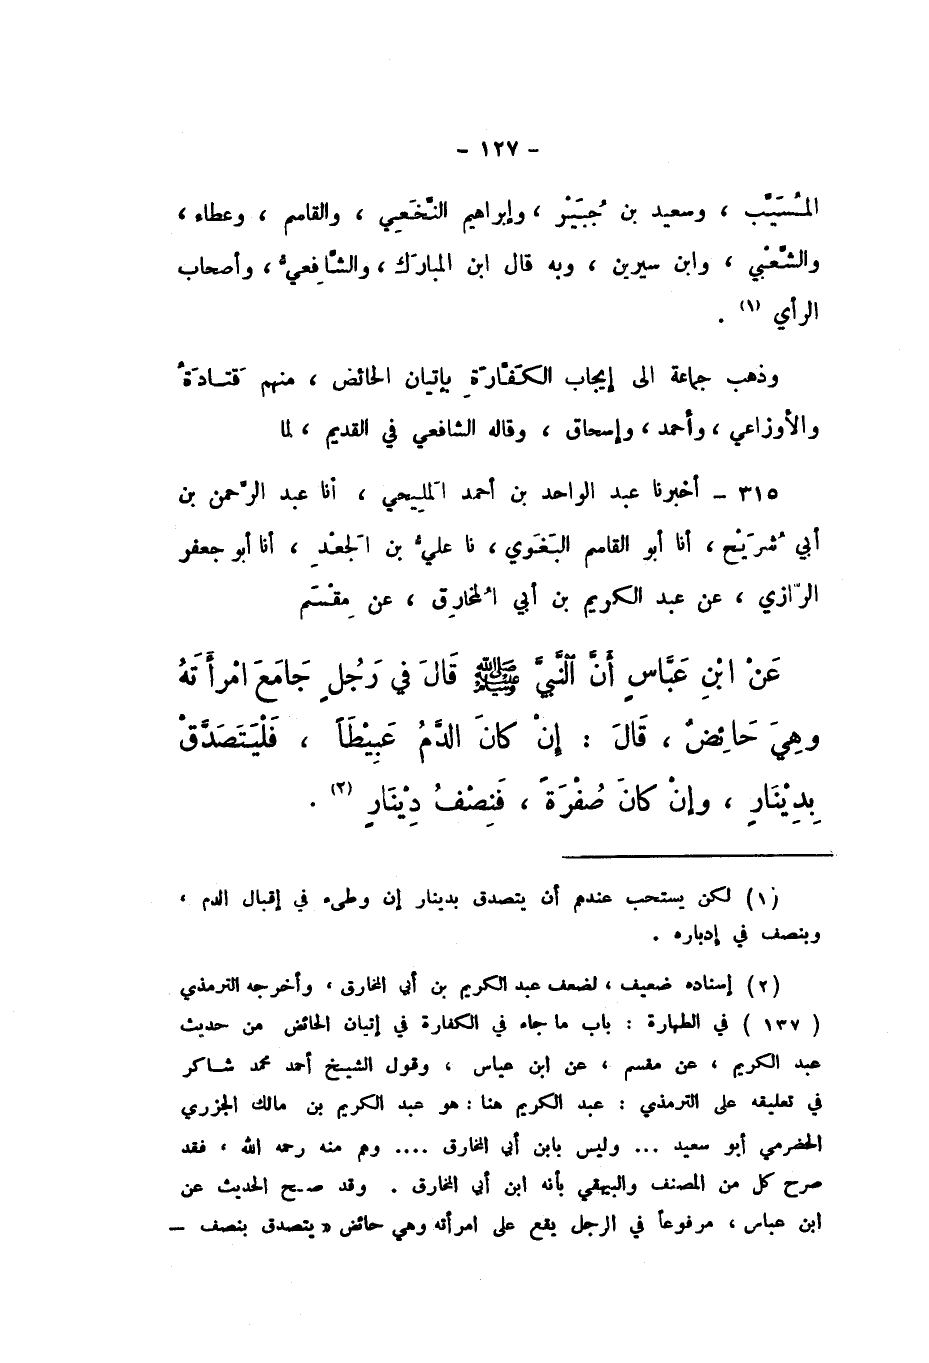 - ١٢٧ -
المُسَيَّب ، وسعيد بن جُبَيْر ، وإبراهيم النَّخَعي ، والقاسم ، وعطاء ،
والشَّعْبي ، وابن سيرين ، وبه قال ابن المبارَك ، والشَّافِعيُّ ، وأصحاب
الرأي (١) .
وذهب جماعة الى إيجاب الكَفَّارَةِ بإتيان الحائض ، منهم قَتَادَةُ
والأوزاعي ، وأحمد ، وإسحاق ، وقاله الشافعي في القديم ، لما
٣١٥ – أخبرنا عبد الواحد بن أحمد المَلِيحي ، أنا عبد الرَّحمن بن
أبي شُرَيْح ، أنا أبو القاسم البَغَوي ، نا عليُّ بن الجَعْدِ ، أنا أبو جعفر
الرَّازي ، عن عبد الكريم بن أبي المُخارِق ، عن مِقْسَم
عَنْ ابْنِ عَبَّاسٍ أَنَّ النَّبيَّ ﷺ قَالَ في رَجُلٍ جَامَعَ امْرأَتَهُ
وهِيَ حَائِضٌ ، قَالَ : إنْ كانَ الدَّمُ عَبِيْطَاً ، فَلْيَتَصَدَّقْ
بِدِيْنَارٍ ، وإنْ كانَ صُفْرَةً ، فَنِصْفُ دِيْنَارٍ (٢) .
(١) لكن يستحب عندهم أن يتصدق بدينار إن وطىء في إقبال الدم ،
وبنصف في إدباره .
(٢) إسناده ضعيف ، لضعف عبد الكريم بن أبي المخارق ، وأخرجه الترمذي
( ١٣٧ ) في الطهارة : باب ما جاء في الكفارة في إتيان الحائض من حديث
عبد الكريم ، عن مقسم ، عن ابن عباس ، وقول الشيخ أحمد محمد شاكر
في تعليقه على الترمذي : عبد الكريم هنا : هو عبد الكريم بن مالك الجزري
الحضرمي أبو سعيد ... وليس بابن أبي المخارق .... وهم منه رحمه الله ، فقد
صرح كل من المصنف والبيهقي بأنه ابن أبي المخارق . وقد صح الحديث عن
ابن عباس ، مرفوعاً في الرجل يقع على امرأته وهي حائض « يتصدق بنصف –